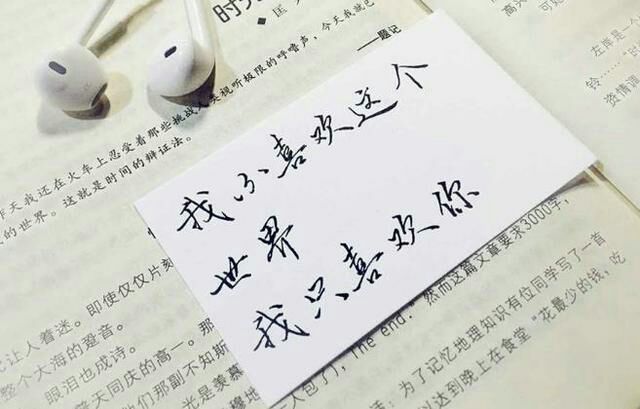 时光
匡
今天我就已
——题记
些挑战人类视听极限的呼噜声，
昨天我还在火车上忍受着那
的世界。这就是时间的辩证法。
我不喜欢这个
世界
我只喜欢你
即使仅仅片刻
让人着迷。
整个大海的跫音。
眼泪也成诗。
普天同庆的高一。那
他们那副不知斯
光是羡慕
穆地
然而这篇文章要求3000字，
The end."
一人包了），
适：为了记忆地理知识有位同学写了一首
以达到晚上在食堂“花最少的钱，吃
左岸是
铃……”
资情调
高六